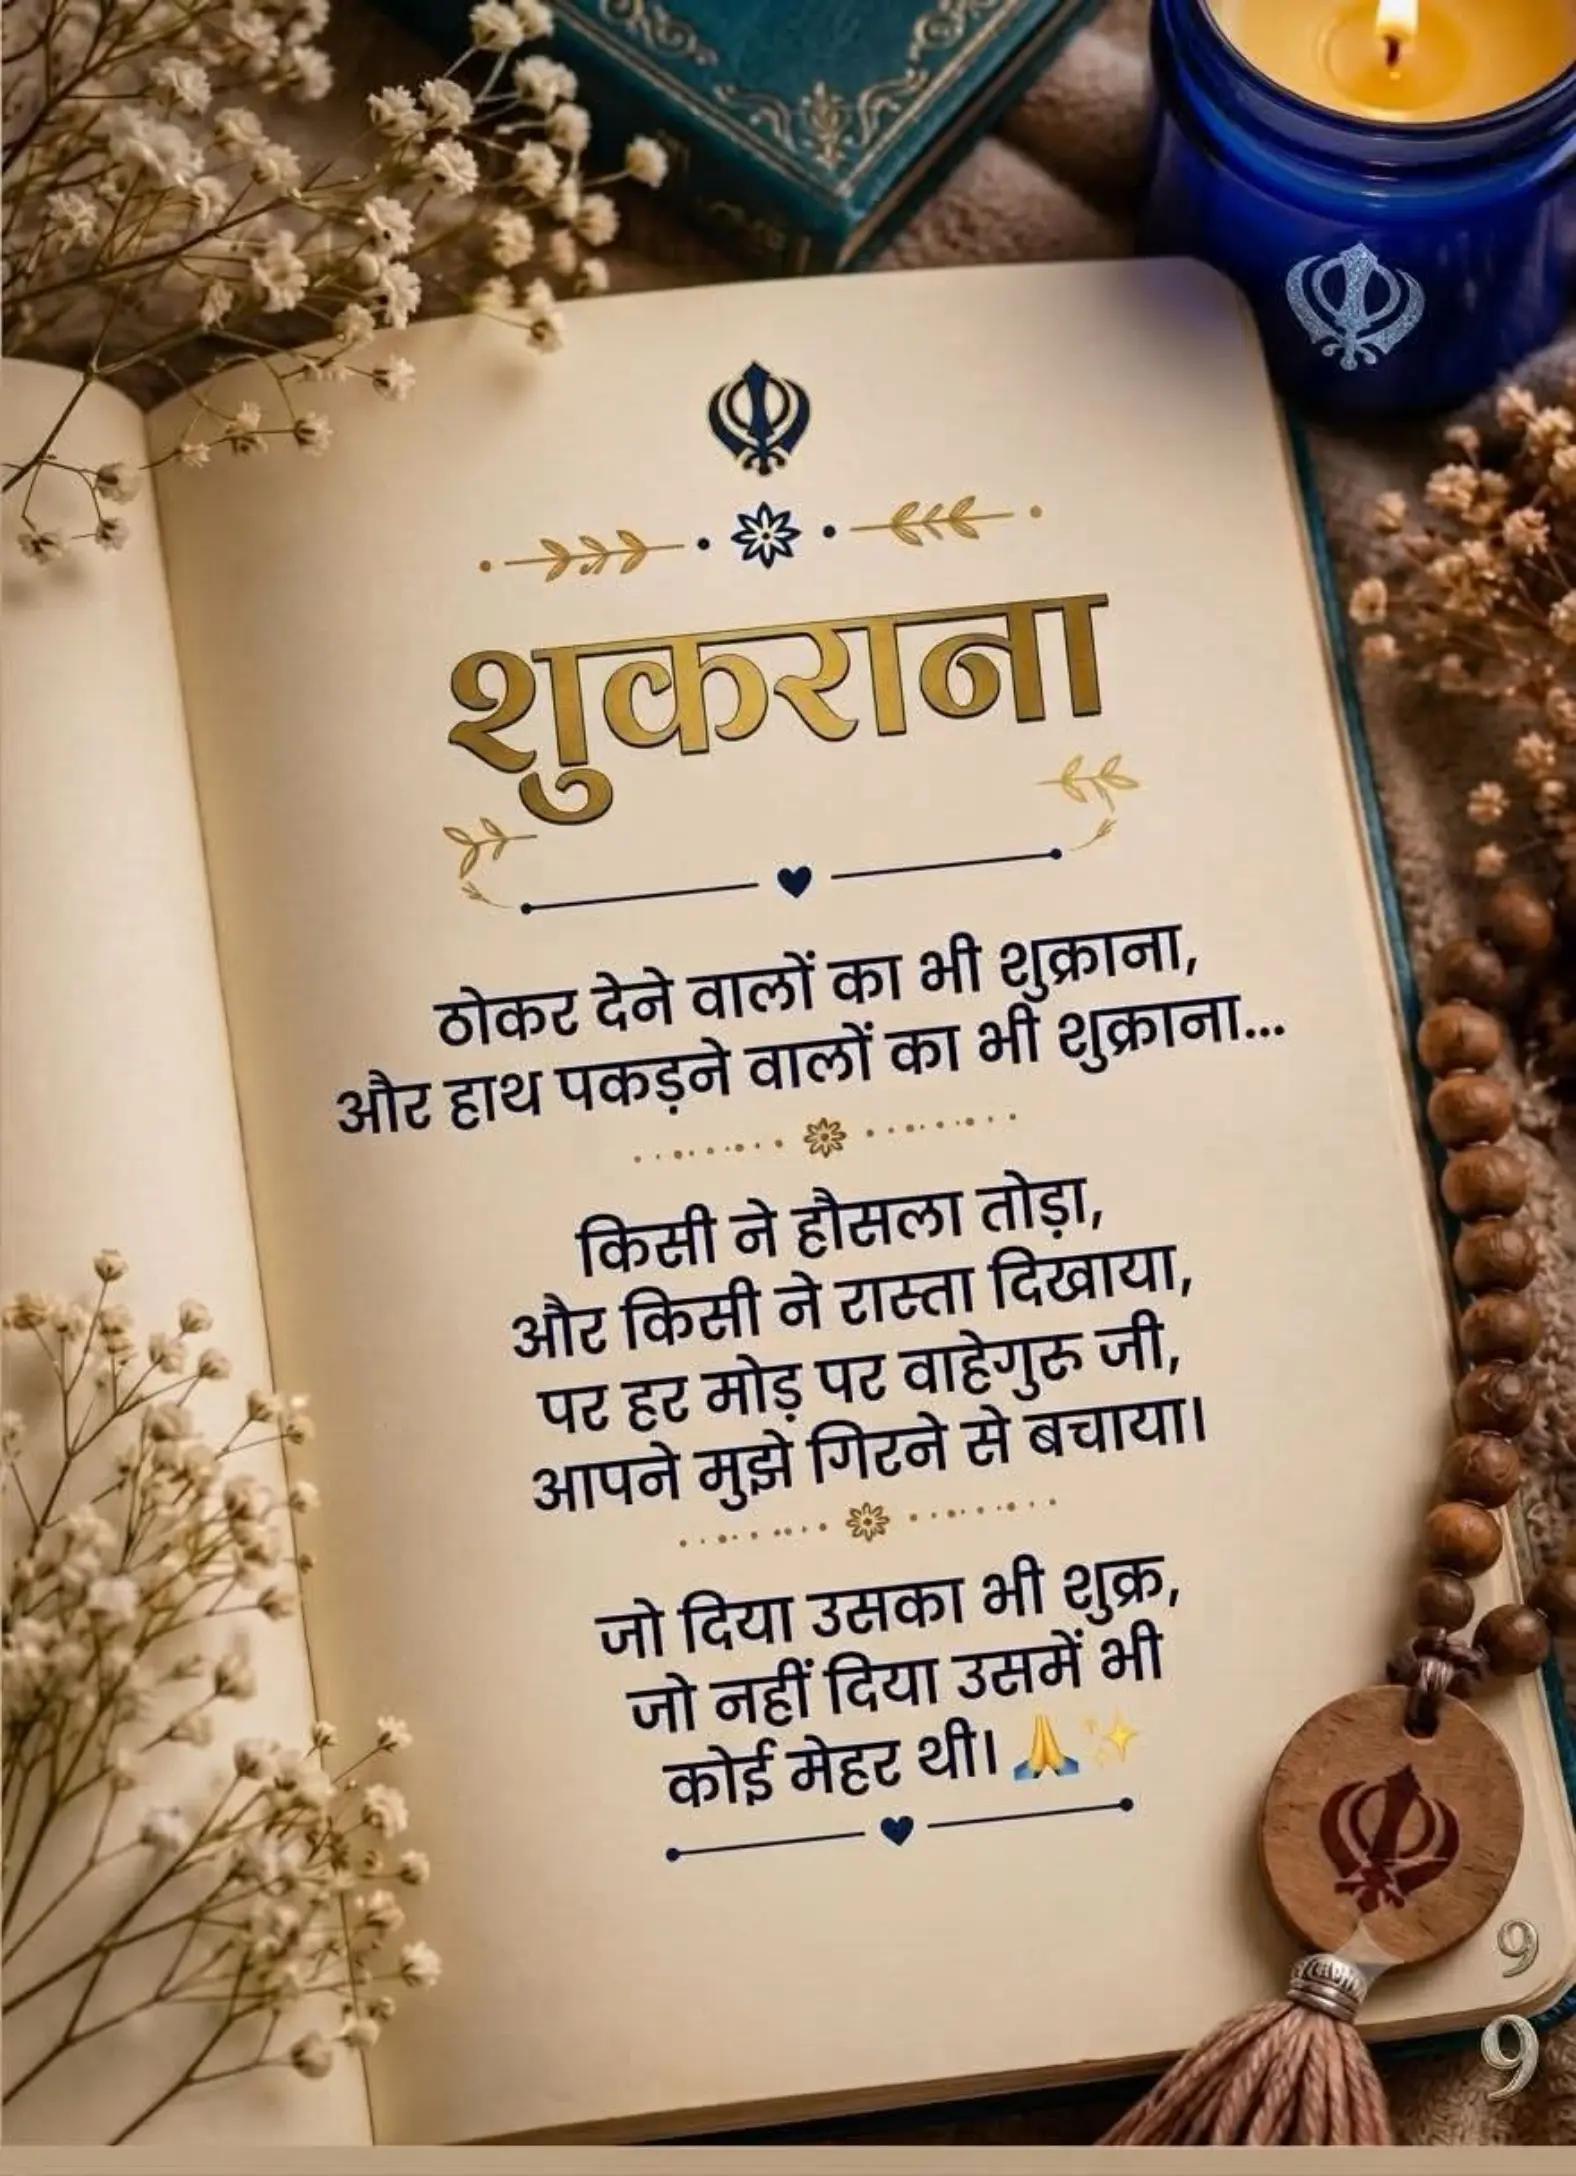 शुकराना
ठोकर देने वालों का भी शुक्राना,
और हाथ पकड़ने वालों का भी शुक्राना...
किसी ने हौसला तोड़ा,
और किसी ने रास्ता दिखाया,
पर हर मोड़ पर वाहेगुरु जी,
आपने मुझे गिरने से बचाया।
जो दिया उसका भी शुक्र,
जो नहीं दिया उसमें भी
कोई मेहर थी। 🙏✨
9
9